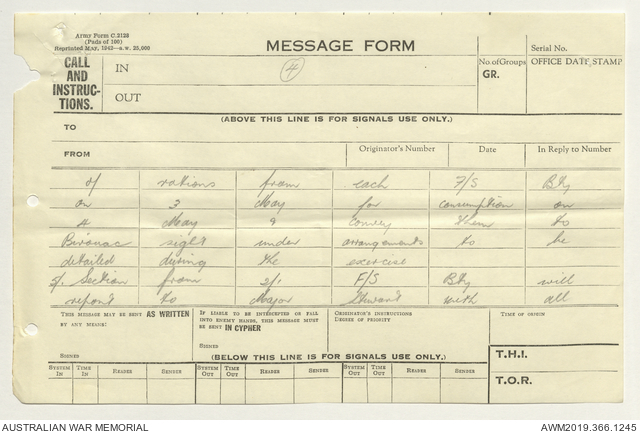 Army Form C.2128
(Pads of 100)
Reprinted May, 1942—a.w. 25,000
MESSAGE FORM
Serial No.
CALL AND INSTRUC-TIONS.
IN
4
OUT
No. of Groups
GR.
OFFICE DATE STAMP
(ABOVE THIS LINE IS FOR SIGNALS USE ONLY.)
TO
FROM
Originator's Number
Date
In Reply to Number
of rations from each F/S Bty
on 3 May for consumption on
4 May & convey them to
Bivouac sight under arrangements to be
detailed during the exercise
Section from 2/1 F/S Bty will
report to Major Stewart with all
THIS MESSAGE MAY BE SENT AS WRITTEN
BY ANY MEANS.
SIGNED
IF LIABLE TO BE INTERCEPTED OR FALL
INTO ENEMY HANDS, THIS MESSAGE MUST
BE SENT IN CYPHER
SIGNED
ORIGINATOR'S INSTRUCTIONS
DEGREE OF PRIORITY
TIME OF ORIGIN
(BELOW THIS LINE IS FOR SIGNALS USE ONLY.)
T.H.I.
T.O.R.
SYSTEM IN
TIME IN
READER
SENDER
SYSTEM OUT
TIME OUT
READER
SENDER
SYSTEM OUT
TIME OUT
READER
SENDER
AUSTRALIAN WAR MEMORIAL
AWM2019.366.1245